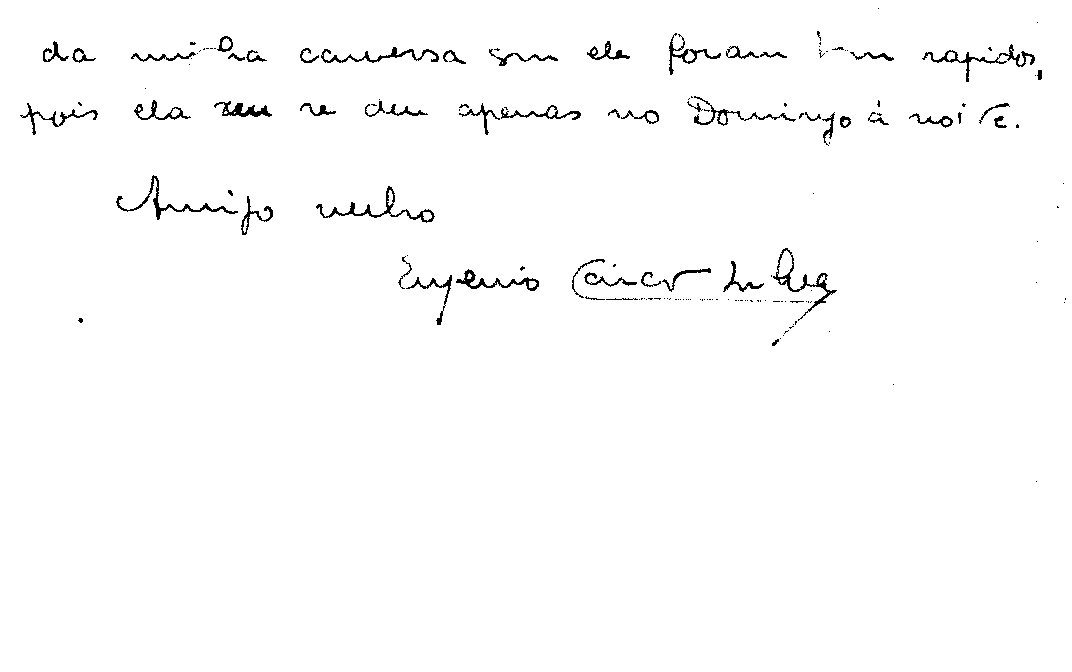 da minha conversa com ele foram bem rapidos,
pois ela se deu apenas no Domingo á noite.
Amigo velho
Eugenio